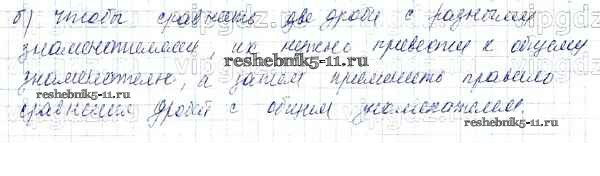 б) Чтобы сравнить две дроби с разными
знаменателями, их нужно привести к общему
знаменателю, а затем применить правило
reshebnik5-11.ru
сравнения дробей с общим знаменателем.
reshebnik5-11.ru